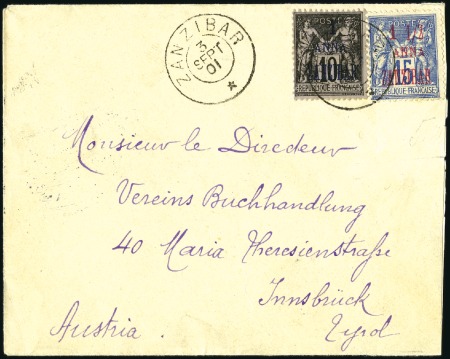 ZANZIBAR
3
SEPT
01
POSTES
ANNA
10
REPUBLIQUE FRANÇAISE
1½
ANNA
ZANZIBAR
15
REPUBLIQUE FRANÇAISE
Monsieur le Diredeur
Vereins Buchhandlung
40 Maria Theresienstraße
Innsbrück
Austria. Tyrol